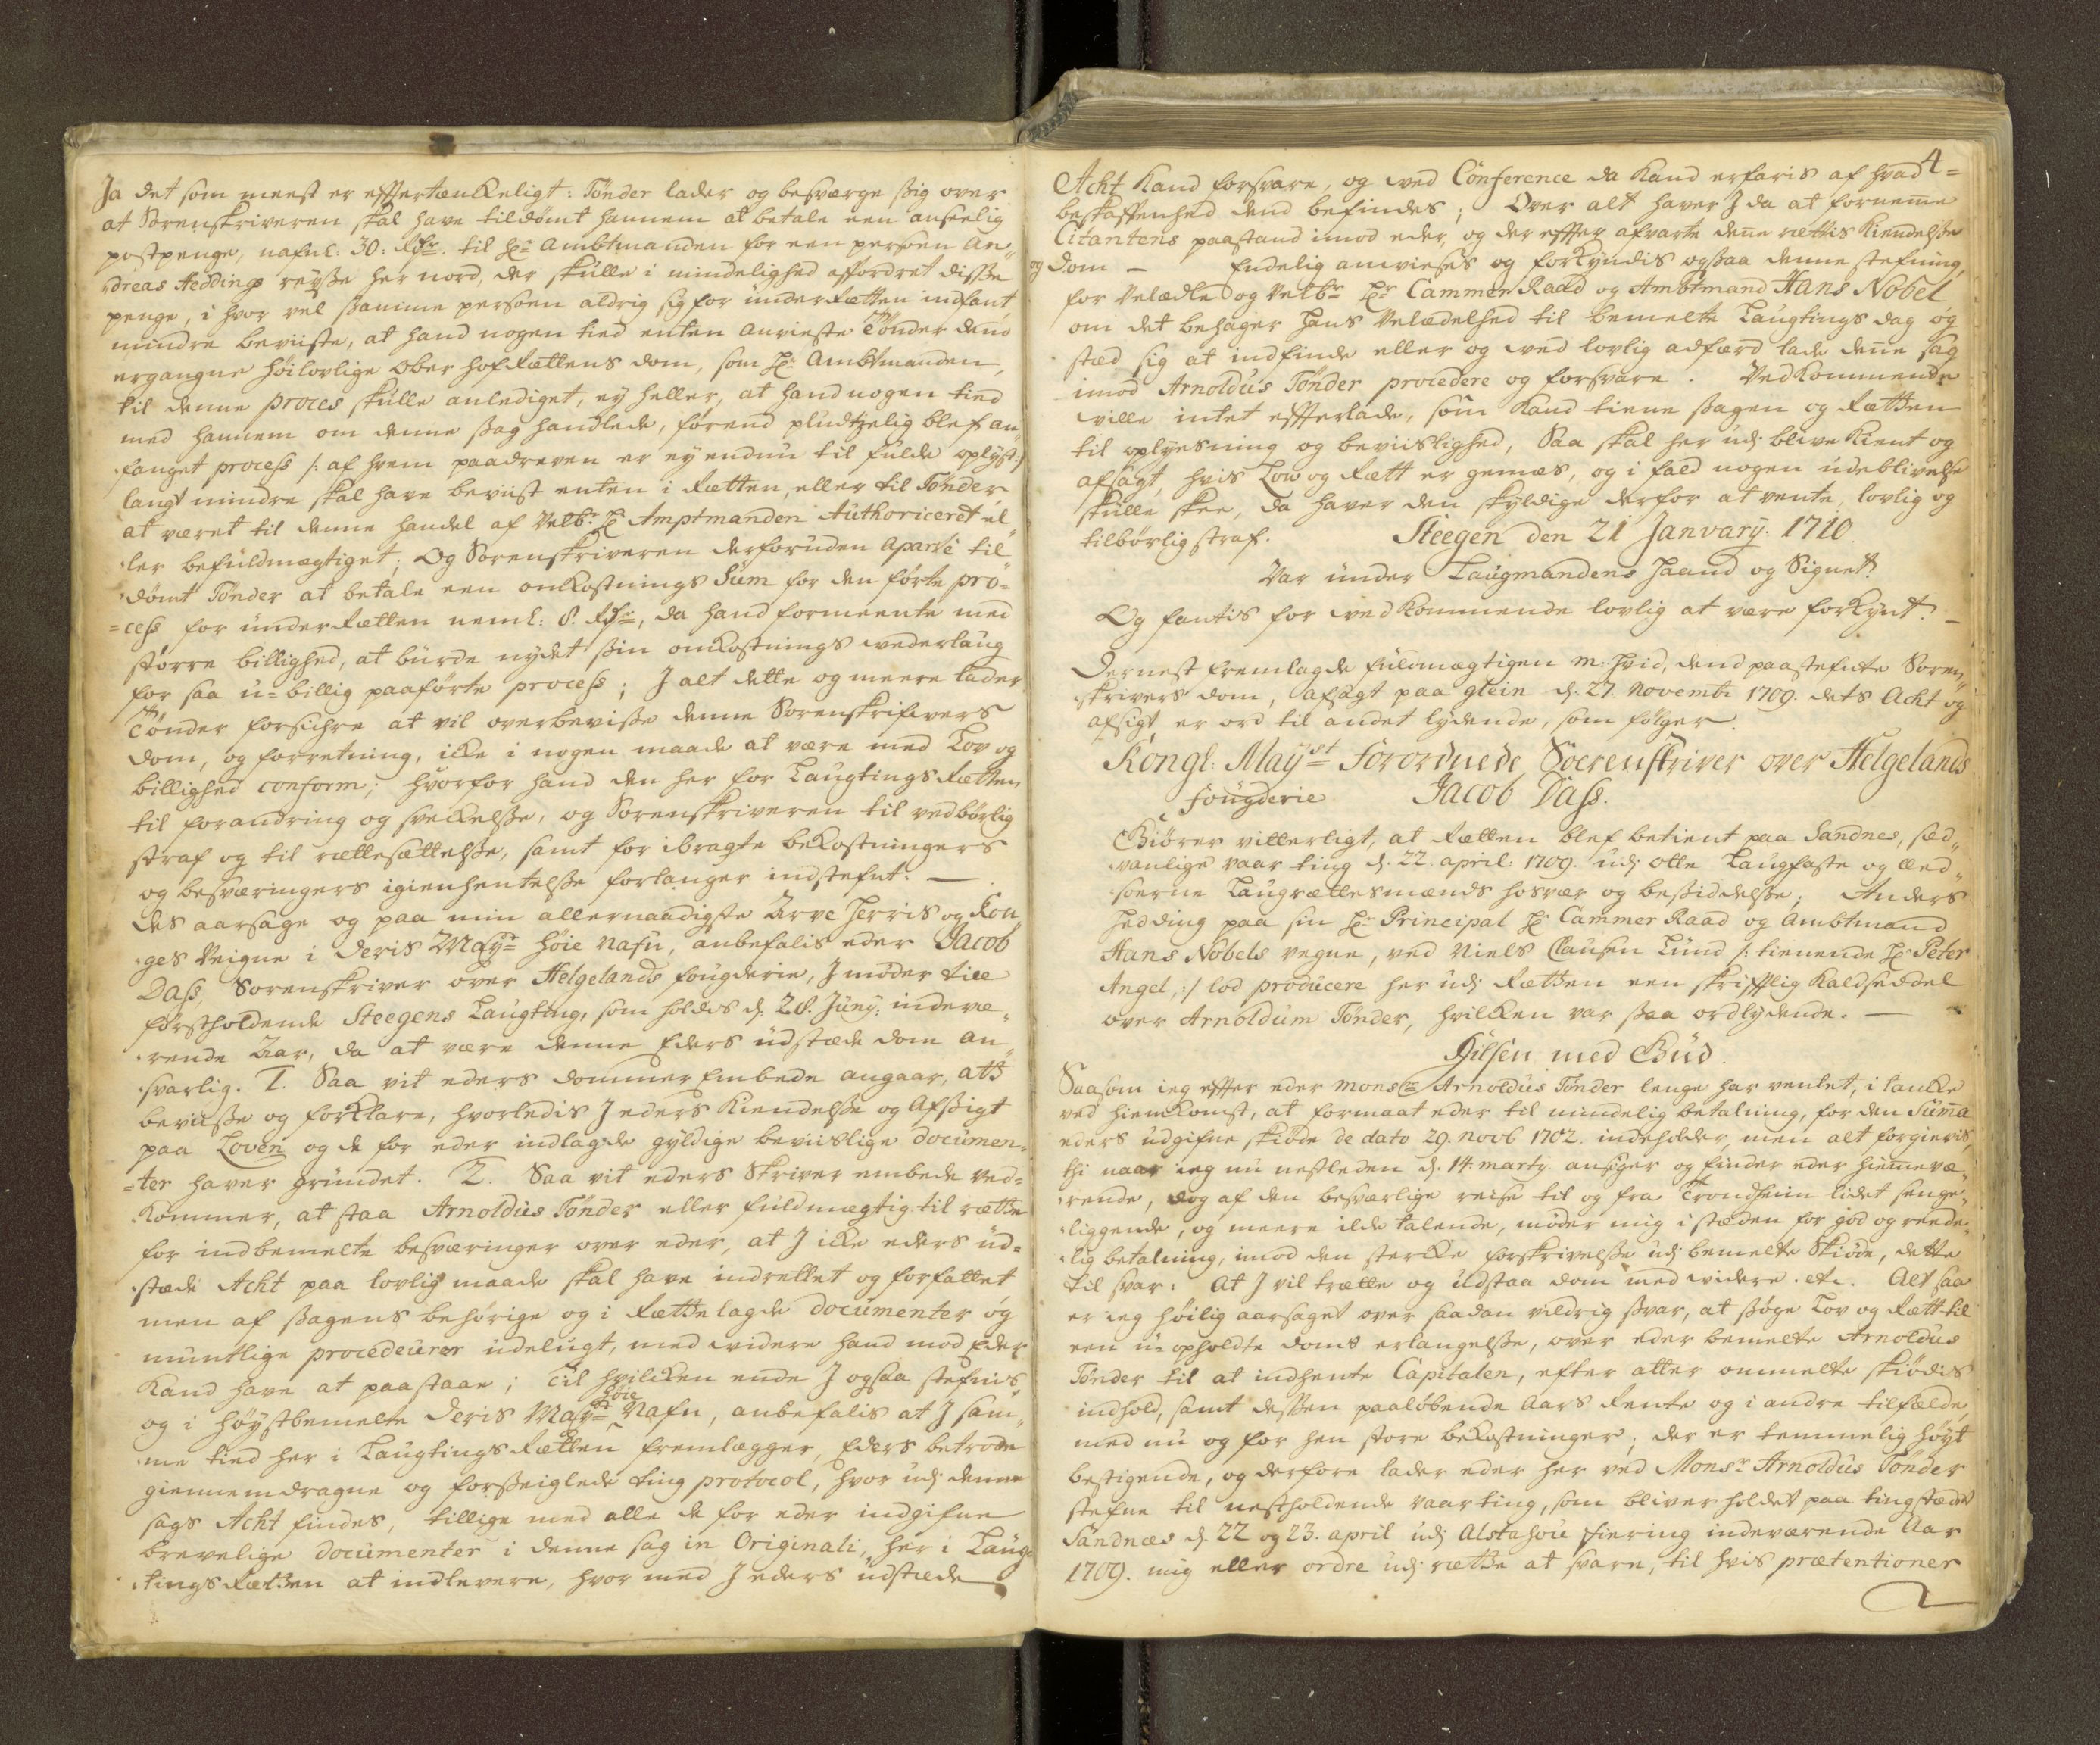 Ja det som meest er efftertænckeligt: Tönder lader og besværge sig over
at Sorenskriveren skal have tildömt hannem at betale een anseelig
postpenge, nafnl: 30: Rdr. til Hr Ambtmanden for een persoen An„
„dreas Heddings reyse her nord, der skulle i mindelighed affordret disse
penge, i hvor vel samme persoen aldrig sig for underRetten indfant,
mindre beviiste, at hand nogen tied enten anvieste Tönder dend
ergangne höilovlige Ober hofRettens dom, som Hr Ambtmanden,
til denne proces skulle anlediget, ey heller, at hand nogen tied
med hannem om denne sag handlede, förend pludtzelig blef an„
fanget process /: af hvem paadreven er ey endnu til fulde oplyst :/
langt mindre skal have beviist enten i Retten, eller til Tönder
at været til denne handel af Velbr Hr Amptmanden Authoriceret el„
„ler befuldmægtiget; Og Sorenskriveren derforuden aparte til„
„dömt Tönder at betale een omkostnings Sum for den förte pro=
=cess for underRetten neml: 8. Rdr, da hand formeente med
större billighed, at burde nydet sin omkostnings vederlaug
for saa u=billig paaförte process; J alt dette og meere lader
Tönder forsichre at vil overbevisse denne Sorenskrifvers
dom, og forretning, icke i nogen maade at være med Lov og
billighed conform; hvorfor hand den her for LaugtingsRetten
til forandring og sveckelsse, og Sorenskriveren til vedbörlig
straf og til rettesettelsse, samt for ibragte bekostningers
og besværingers igienhentelsse forlanger indstefnt. —
Des aarsage og paa min allernaadigste Arve Herris og Kon„
„ges Veigne i Deris Mayst höie Nafn, anbefalis eder Jacob
Dass, Sorenskriver over Helgelands fougderie, J möder til
förstholdende Steegens Laugting, som holdes d. 28. Juny. indevæ„
„rende Aar, da at være denne Eders udstæde dom an„
„svarlig. 1. Saa vit eders dommer Embede angaar, at
bevisse og forklare, hvorledis J eders Kiendelsse og Afsigt
paa Loven og de for eder indlagde gyldige beviislige documen=
=ter haver grundet. 2. Saa vit eders Skriver embede ved=
kommer, at staa Arnoldus Tönder eller fuldmægtig til rette
for indbemelte besværinger over eder, at J icke eders ud=
stæde Acht paa lovlig maade skal have indrettet og forfattet
men af sagens behörige og i Rette lagde documenter og
muntlige procedeurer udelugt, med videre hand mod Eder
Kand have at paastaae; Til hvilcken ende J ogsaa stefnis
og i höystbemelte Deris Mayst höie Nafn, anbefalis at J sam„
„me tied her i LaugtingsRetten fremlegger, Eders betroede
giennemdragne og forseiglede ting protocol, hvor udj denne
sags Acht findes, tillige med alle de for eder indgifne
brevelige documenter i denne sag in Originali, her i Laug„
„tingsRetten at indlevere, hvor med J eders udstæde
4
Acht Kand forsvare, og ved Conference da Kand erfaris af hvad =
beskaffenhed dend befindes; Over alt haver J da at fornemme
Citantens paastand imod eder, og der effter afvarte denne rettis Kiendelsse
og Dom — Endelig anvieses og forkyndis ogsaa denne stefning
for Velædle og Velbr Hr Cammer Raad og Ambtmand Hans Nobel
om det behager Hans Velædelhed til bemelte Laugtings dag og
stæd sig at indfinde eller og ved lovlig adfærd lade denne sag
imod Arnoldus Tönder procedere og forsvare. Vedkommende
ville intet effterlade, som Kand tiene sagen og Retten
til oplysning og beviislighed, Saa skal her udj blive Kient og
afsagt, hvis Low og Rett er gemæs, og i fald nogen udeblivelse
skulle skee, da haver den skyldige derfor at vente lovlig og
tilbörlig straf. Steegen den 21 January. 1710.
Var under Laugmandens Haand og Signet.
Og fantis for vedkommende lovlig at være forkynt. —
Dernest fremlagde fuldmægtigen m: Hvid, dend paastefnte Soren„
„skrivers dom, afsagt paa glein d: 27. Novembr 1709. dets Acht og
afsigt er ord til andet lydende, som fölger
Kongl: Mayst Forordnede Soerenskriver over Helgelands
fougderie Jacob Dass.
Giörer vitterligt, at Retten blef betient paa Sandnes, sæd„
„vanlige vaar ting d. 22. april: 1709. udj otte Laugfaste og Eed„
„soerne Laugrettesmænds hosvær og besiddelsse, Anders
Hedding paa sin Hr Principal Hr Cammer Raad og Ambtmand
Hans Nobels vegne, ved Niels Clausen Lund /: tienende Hr Peter
Angel, :/ lod producere her udj Retten een skrifftlig Kaldseddel
over Arnoldum Tönder, hvilcken var saa ordlydende. —
Hilsen med Gud.
Saasom ieg effter eder Monsr Arnoldus Tönder lenge har ventet, i tancke
ved hiemkomst, at formaat eder til mindelig betalning, for den Summa
eders udgifne skiöde de dato 29. Novb 1702. indeholder, men alt forgievis,
thi naar ieg nu nestleden d. 14 marty ansöger og finder eder hiemmevæ„
„rende, dog af den besværlige reise til og fra Trondheim lidet senge„
„liggende, og meere ilde talende, möder mig i stæden for god og reede„
„lig betalning, imod den stercke forskrivelsse udj bemelte Skiöde, dette
til svar: At J vil trætte og udstaa dom med videre. etc. Alt saa
er ieg höilig aarsaget over saadan vildrig svar, at söge Lov og Rett til
een u=opholdte doms erlangelsse, over eder bemelte Arnoldus
Tönder til at indhente Capitalen, efter atter ommelte skiödes
indhold, samt dessen paalöbende Aars Rente og i andre tilfælde
med nu og for hen store bekostninger, der er temmelig höyt
bestigende, og derfore lader eder her ved Monsr Arnoldus Tönder
stefne til nestholdende vaarting, som bliver holdet paa tingstædet
Sandnæs d. 22 og 23. april udj Alstahou fiering indeværende Aar
1709. mig eller ordre udj rette at svare, til hvis prætentioner